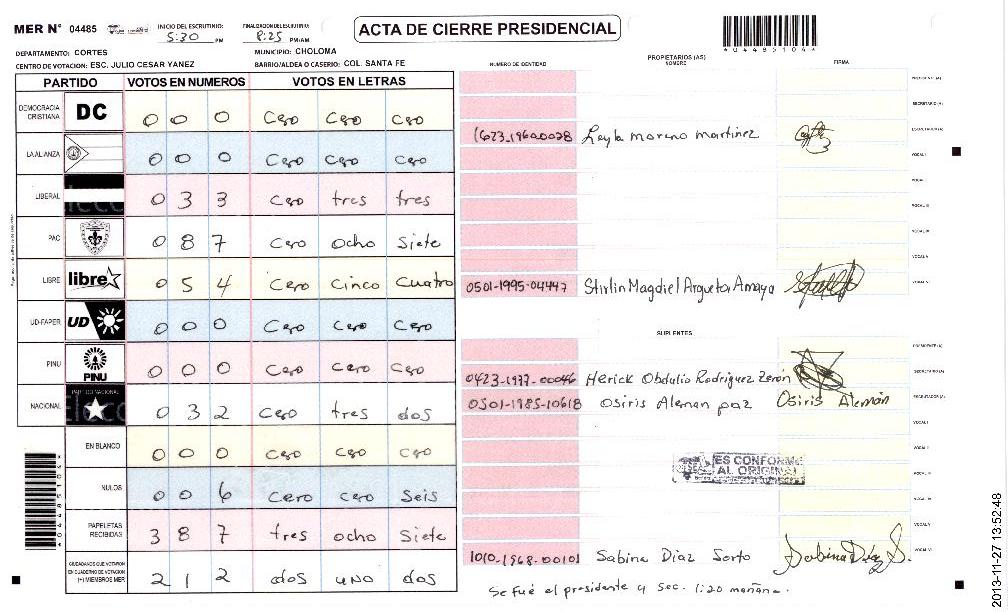 MER Nº 04485
INICIO DEL ESCRUTINIO: 5:30 PM
FINALIZACION DEL ESCRUTINIO: 8:25 PM/AM
ACTA DE CIERRE PRESIDENCIAL
*044851041*
DEPARTAMENTO: CORTES
MUNICIPIO: CHOLOMA
CENTRO DE VOTACION: ESC. JULIO CESAR YANEZ
BARRIO/ALDEA O CASERIO: COL. SANTA FE
PARTIDO VOTOS EN NUMEROS VOTOS EN LETRAS
DEMOCRACIA CRISTIANA DC 0 0 0 Cero Cero Cero
LA ALIANZA 0 0 0 Cero Cero Cero
LIBERAL 0 3 3 Cero tres tres
PAC 0 8 7 Cero ocho Siete
LIBRE libre 0 5 4 Cero Cinco Cuatro
UD-FAPER UD 0 0 0 Cero Cero Cero
PINU PINU 0 0 0 Cero Cero Cero
NACIONAL PARTIDO NACIONAL 0 3 2 Cero tres dos
EN BLANCO 0 0 0 Cero Cero Cero
NULOS 0 0 6 Cero Cero Seis
PAPELETAS RECIBIDAS 3 8 7 tres ocho Siete
CIUDADANOS QUE VOTARON EN CUADERNO DE VOTACION (+) MIEMBROS MER 2 1 2 dos uno dos
PROPIETARIOS (AS)
NUMERO DE IDENTIDAD NOMBRE FIRMA
PRESIDENTE (A)
SECRETARIO (A)
1623-1960-0028 Leyla moreno martinez ESCRUTADOR (A)
VOCAL I
VOCAL II
VOCAL III
VOCAL IV
VOCAL V
0501-1995-04447 Stirlin Magdiel Argueta Amaya VOCAL VI
SUPLENTES
PRESIDENTE (A)
0423-1977-00046 Herick Obdulio Rodriguez Zerón SECRETARIO (A)
0501-1985-10618 Osiris Aleman paz Osiris Alemán ESCRUTADOR (A)
VOCAL I
VOCAL II
ES CONFORME AL ORIGINAL
VOCAL III
VOCAL IV
VOCAL V
1010-1968-00101 Sabina Diaz Sorto Sabina Díaz S. VOCAL VI
Se fué el presidente y Sec. 1:20 mañana.
2013-11-27 13:52:48